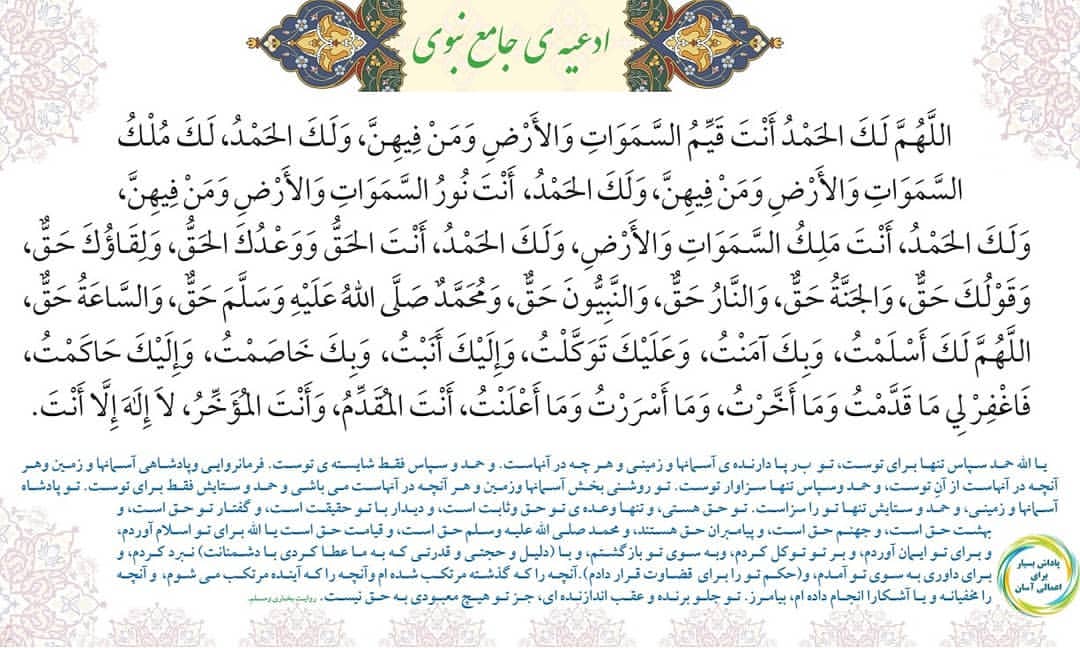 ادعیه ی جامع نبوی
اللَّهُمَّ لَكَ الحَمْدُ أَنْتَ قَيِّمُ السَّمَوَاتِ وَالأَرْضِ وَمَنْ فِيهِنَّ، وَلَكَ الحَمْدُ، لَكَ مُلْكُ
السَّمَوَاتِ وَالأَرْضِ وَمَنْ فِيهِنَّ، وَلَكَ الحَمْدُ، أَنْتَ نُورُ السَّمَوَاتِ وَالأَرْضِ وَمَنْ فِيهِنَّ،
وَلَكَ الحَمْدُ، أَنْتَ مَلِكُ السَّمَوَاتِ وَالأَرْضِ، وَلَكَ الحَمْدُ، أَنْتَ الحَقُّ وَوَعْدُكَ الحَقُّ، وَلِقَاؤُكَ حَقٌّ،
وَقَوْلُكَ حَقٌّ، وَالجَنَّةُ حَقٌّ، وَالنَّارُ حَقٌّ، وَالنَّبِيُّونَ حَقٌّ، وَمُحَمَّدٌ صَلَّى اللهُ عَلَيْهِ وَسَلَّمَ حَقٌّ، وَالسَّاعَةُ حَقٌّ،
اللَّهُمَّ لَكَ أَسْلَمْتُ، وَبِكَ آمَنْتُ، وَعَلَيْكَ تَوَكَّلْتُ، وَإِلَيْكَ أَنَبْتُ، وَبِكَ خَاصَمْتُ، وَإِلَيْكَ حَاكَمْتُ،
فَاغْفِرْ لِي مَا قَدَّمْتُ وَمَا أَخَّرْتُ، وَمَا أَسْرَرْتُ وَمَا أَعْلَنْتُ، أَنْتَ المُقَدِّمُ، وَأَنْتَ المُؤَخِّرُ، لاَ إِلَهَ إِلَّا أَنْتَ.
یا الله حمد سپاس تنها برای توست، تو بر پا دارنده ی آسمانها و زمینی و هر چه در آنهاست. و حمد و سپاس فقط شایسته ی توست. فرمانروایی وپادشاهی آسمانها و زمین وهر
آنچه در آنهاست از آنِ توست، و حمد وسپاس تنها سزاوار توست. تو روشنی بخش آسمانها وزمین و هر آنچه در آنهاست می باشی و حمد و ستایش فقط برای توست. تو پادشاه
آسمانها و زمینی، و حمد و ستایش تنها تو را سزاست. تو حق هستی، و تنها وعده ی تو حق وثابت است، و دیدار با تو حقیقت است، و گفتار تو حق است، و
بهشت حق است، و جهنم حق است، و پیامبران حق هستند، و محمد صلی الله علیه وسلم حق است، و قیامت حق است یا الله برای تو اسلام آوردم،
و برای تو ایمان آوردم، و بر تو توکل کردم، وبه سوی تو بازگشتم، و با (دلیل و حجتی و قدرتی که به ما عطا کردی با دشمنانت) نبرد کردم، و
برای داوری به سوی تو آمدم، و(حکم تو را برای قضاوت قرار دادم).آنچه را که گذشته مرتکب شده ام وآنچه را که آینده مرتکب می شوم، و آنچه
را مخفیانه و یا آشکارا انجام داده ام، بیامرز. تو جلو برنده و عقب اندازنده ای، جز تو هیچ معبودی به حق نیست. روایت بخاری ومسلم.
پاداش بسیار
برای
اعمالی آسان